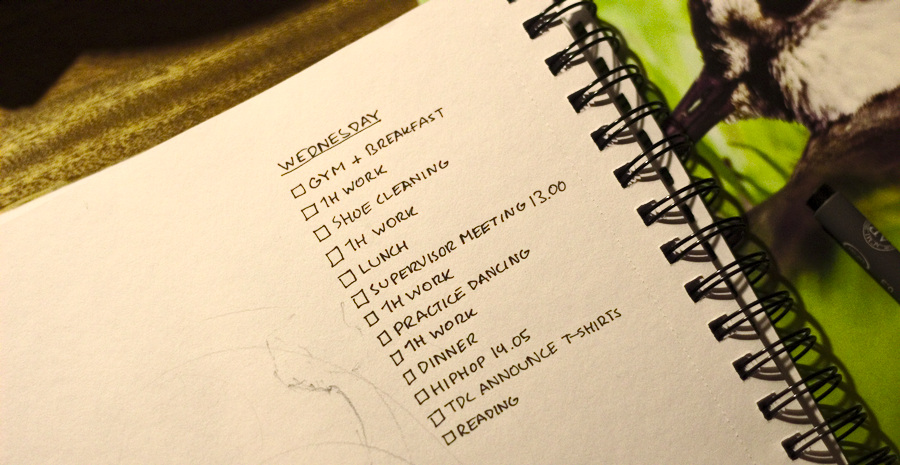 WEDNESDAY
GYM + BREAKFAST
1H WORK
SHOE CLEANING
1H WORK
LUNCH
SUPERVISOR MEETING 13.00
1H WORK
PRACTICE DANCING
1H WORK
DINNER
HIPHOP 19.05
TDC ANNOUNCE T-SHIRTS
READING